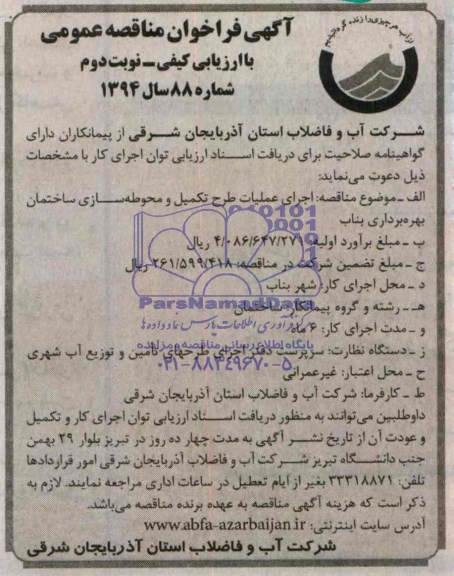 از آب هر چیزی را زنده گردانیدیم
آگهی فراخوان مناقصه عمومی
با ارزیابی کیفی ـ نوبت دوم
شماره ۸۸ سال ۱۳۹۴
شرکت آب و فاضلاب استان آذربایجان شرقی از پیمانکاران دارای
گواهینامه صلاحیت برای دریافت اسناد ارزیابی توان اجرای کار با مشخصات
ذیل دعوت می‌نماید:
الف ـ موضوع مناقصه: اجرای عملیات طرح تکمیل و محوطه‌سازی ساختمان
بهره‌برداری بناب
ب ـ مبلغ برآورد اولیه: ۴/۰۸۶/۶۴۷/۲۷۱ ریال
ج ـ مبلغ تضمین شرکت در مناقصه: ۲۶۱/۵۹۹/۴۱۸ ریال
د ـ محل اجرای کار: شهر بناب
هـ ـ رشته و گروه پیمانکار: ساختمان
و ـ مدت اجرای کار: ۶ ماه
ز ـ دستگاه نظارت: سرپرست دفتر اجرای طرحهای تأمین و توزیع آب شهری
ح ـ محل اعتبار: غیرعمرانی
ط ـ کارفرما: شرکت آب و فاضلاب استان آذربایجان شرقی
داوطلبین می‌توانند به منظور دریافت اسناد ارزیابی توان اجرای کار و تکمیل
و عودت آن از تاریخ نشر آگهی به مدت چهار ده روز در تبریز بلوار ۲۹ بهمن
جنب دانشگاه تبریز شرکت آب و فاضلاب آذربایجان شرقی امور قراردادها
تلفن: ۳۳۳۱۸۸۷۱ بغیر از ایام تعطیل در ساعات اداری مراجعه نمایند. لازم به
ذکر است که هزینه آگهی مناقصه به عهده برنده مناقصه می‌باشد.
آدرس سایت اینترنتی: www.abfa-azarbaijan.ir
شرکت آب و فاضلاب استان آذربایجان شرقی
ParsNamadData
پایگاه اطلاع رسانی مناقصه و مزایده
۰۲۱-۸۸۳۴۹۶۷۰-۵